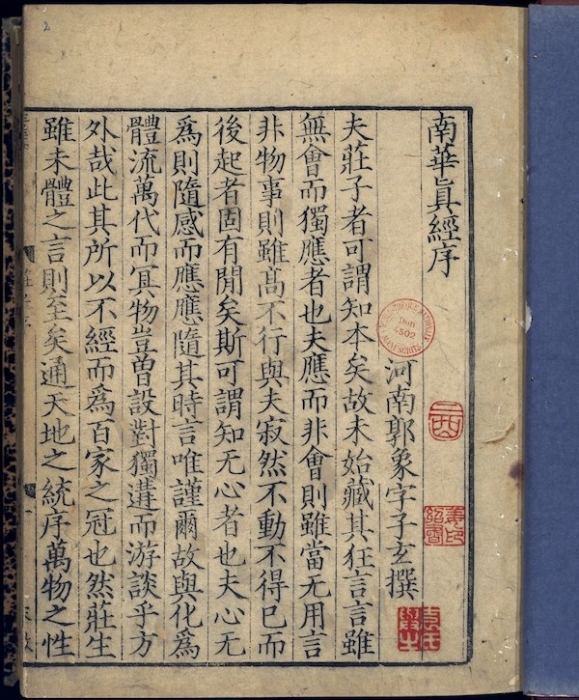 南華眞經序
河南郭象字子玄撰
夫莊子者可謂知本矣故未始藏其狂言言雖
無會而獨應者也夫應而非會則雖當无用言
非物事則雖髙不行與夫寂然不動不得已而
後起者固有閒矣斯可謂知无心者也夫心无
爲則隨感而應應隨其時言唯謹爾故與化爲
體流萬代而冥物豈曽設對獨遘而游談乎方
外哉此其所以不經而爲百家之冠也然莊生
雖未體之言則至矣通天地之統序萬物之性
4502